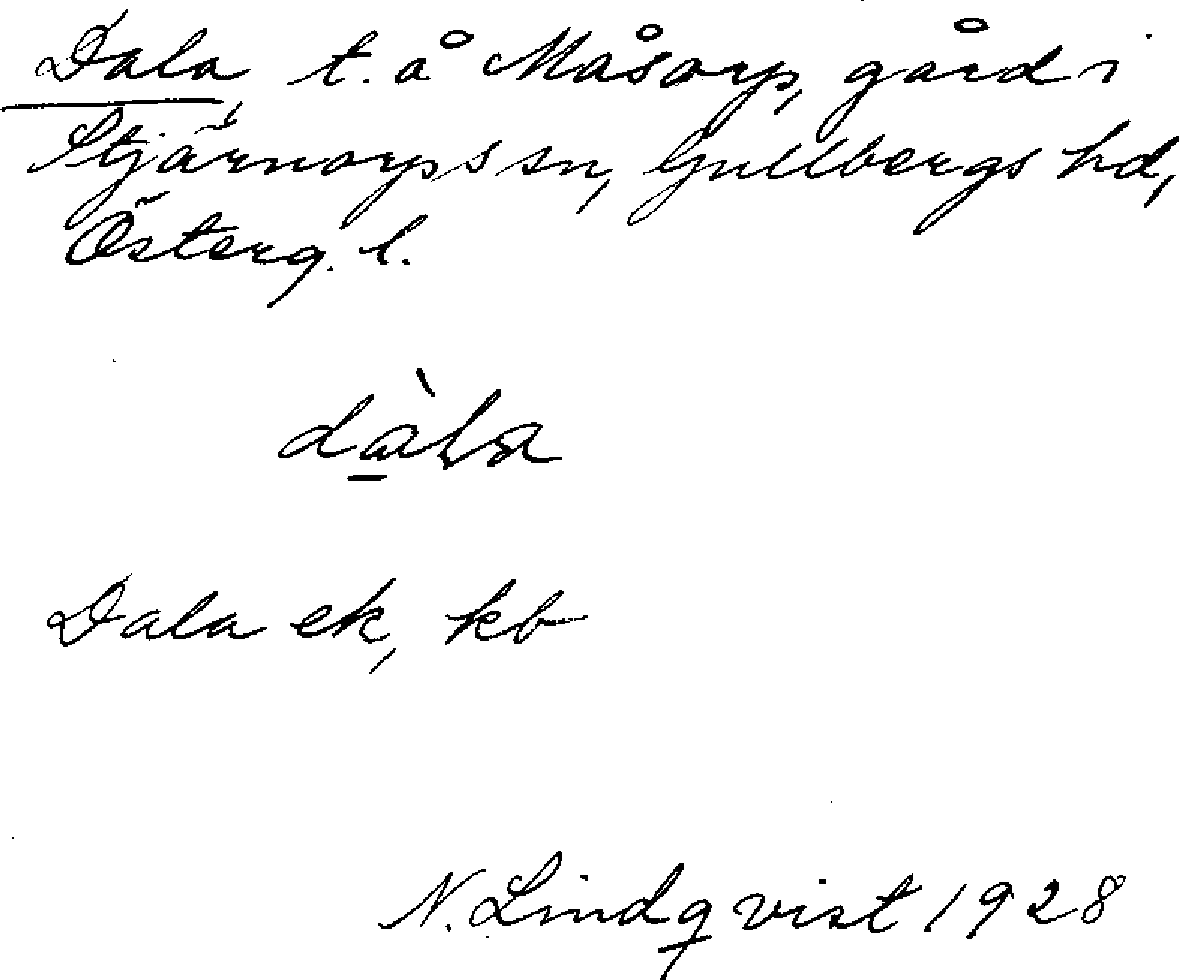 Dala, t. å Måsorp, gård i
Stjärnorps sn, Gullbergs hd,
Österg. l.
dàla
Dala ek, kb
N. Lindqvist 1928